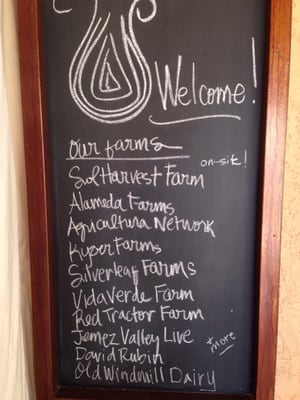 Welcome!
our farms
on-site!
Sol Harvest Farm
Alameda Farms
Agricultura Network
Kyper Farms
Silverleaf Farms
Vida Verde Farm
Red Tractor Farm
Jemez Valley Live
David Rubin
Old Windmill Dairy
+ more